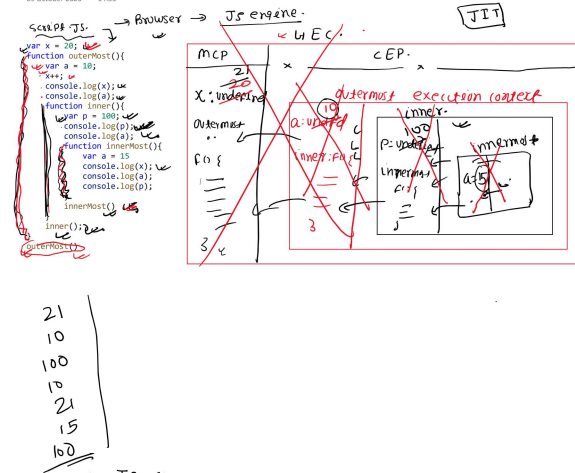 Script.JS. → Browser → JS engine.
JIT
GEC.
var x = 20;
function outerMost(){
var a = 10;
x++;
console.log(x);
console.log(a);
function inner(){
var p = 100;
console.log(p);
console.log(a);
function innerMost(){
var a = 15
console.log(x);
console.log(a);
console.log(p);
innerMost()
inner();
outerMost()
MCP
CEP.
21
20
x :
outermost
f() {
}
outermost execution context
10
a:
inner:f() {
}
inner.
100
p=
innermost
f() {
}
innermost
a= 15
21
10
100
10
21
15
100